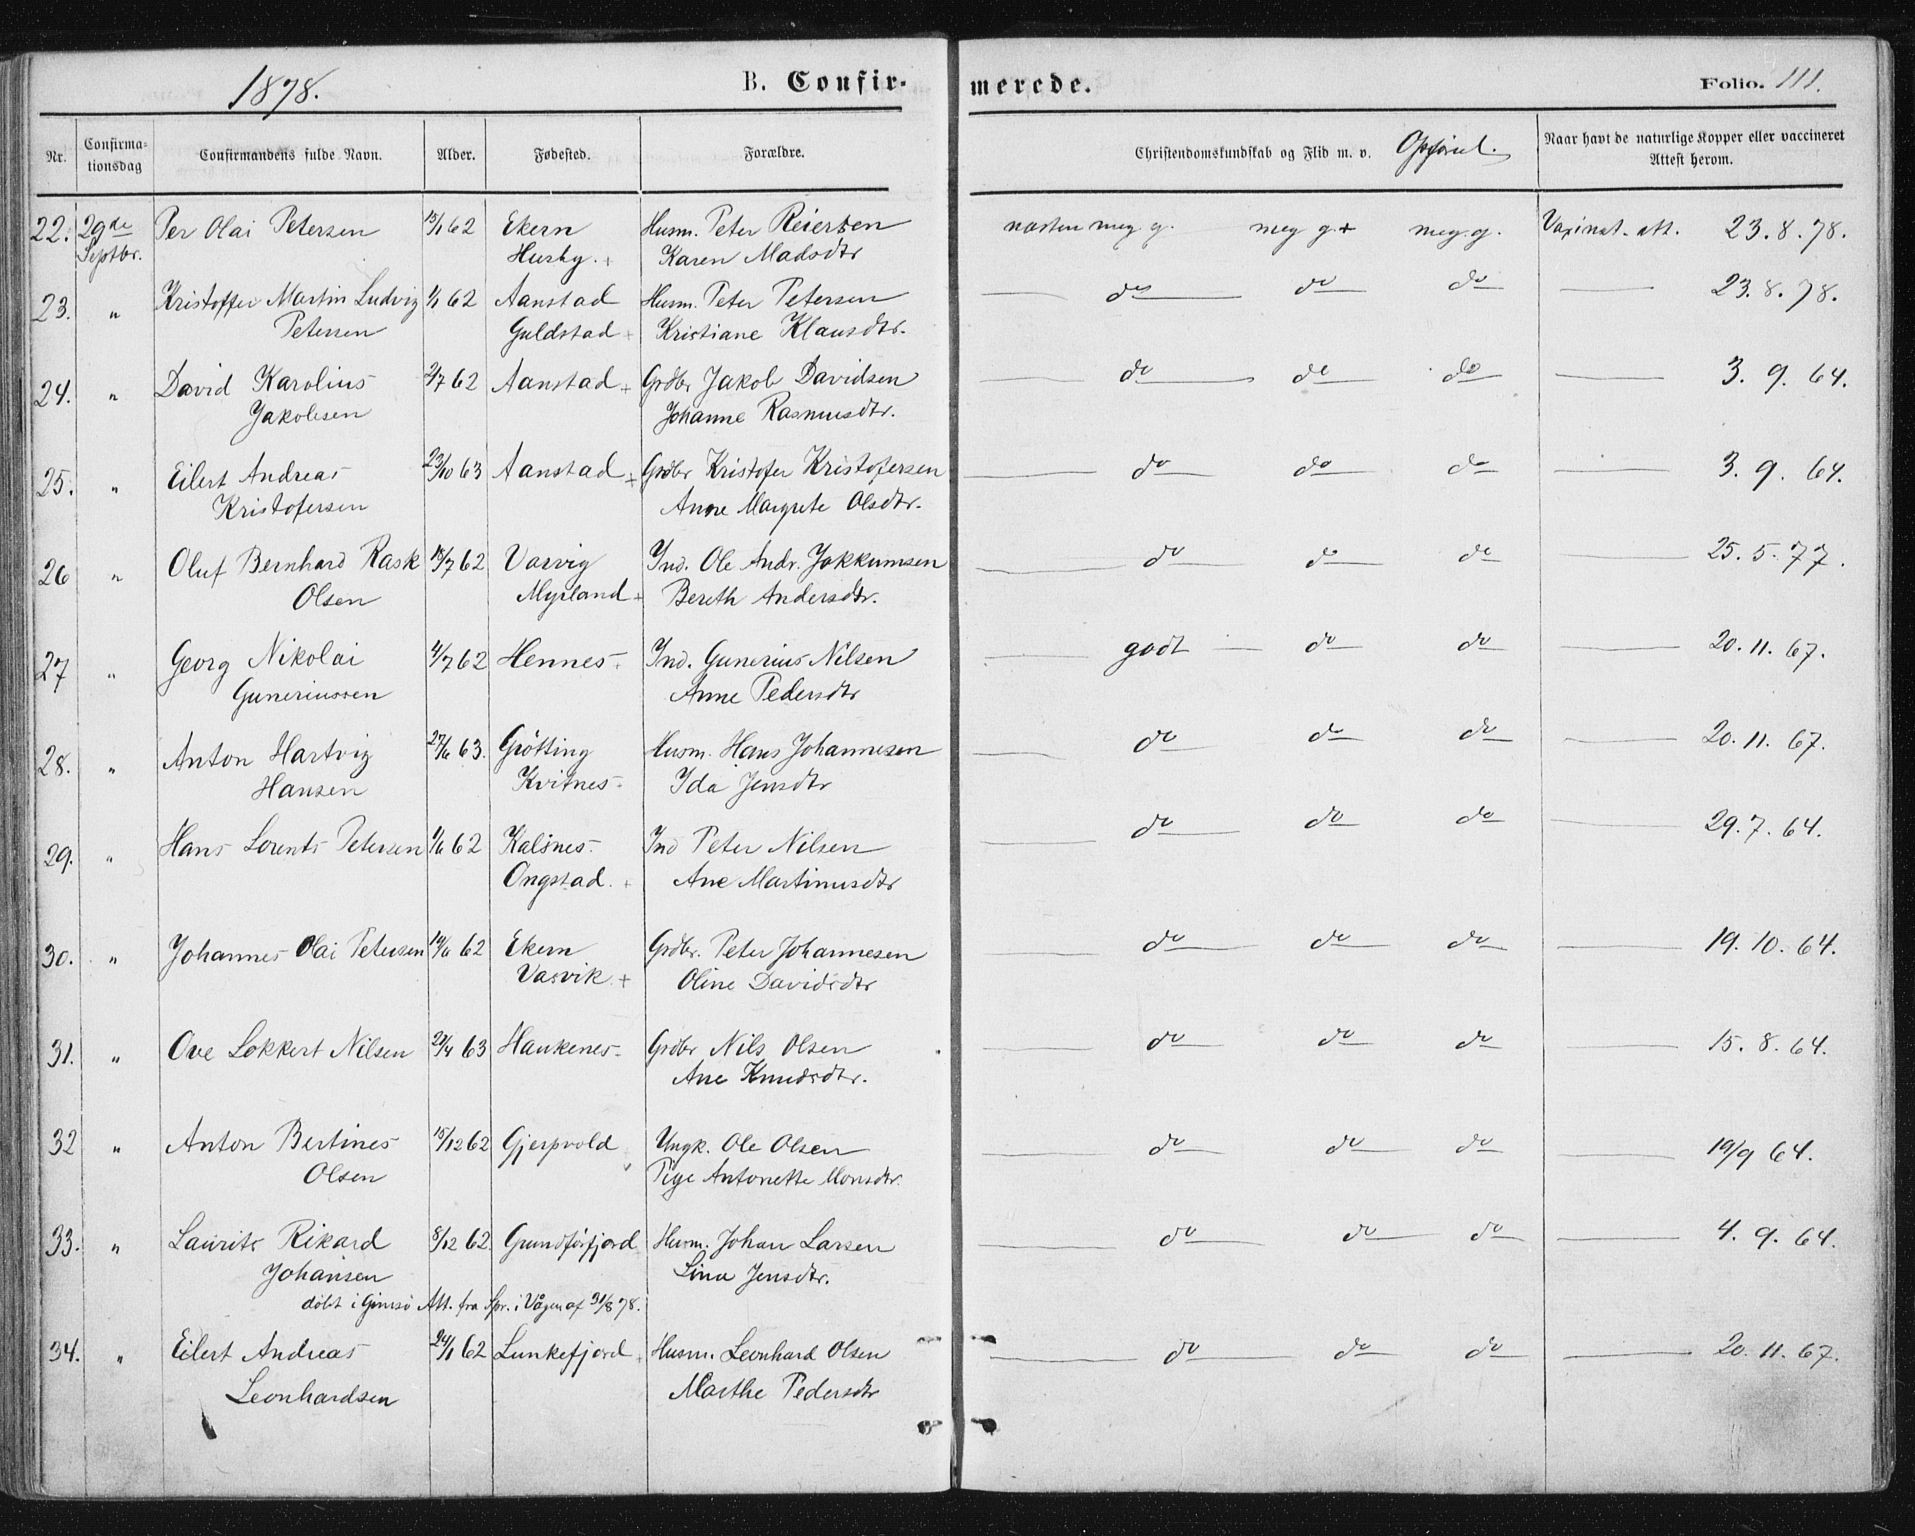 1878. B. Confir- merede. Folio. 111.
Nr. Confirma- tionsdag Confirmandens fulde Navn. Alder. Fødested. Forældre. Christendomskundskab og Flid m. v. Opførsel. Naar havt de naturlige Kopper eller vaccineret Attest herom.
22. 29de Per Olai Petersen 62 Ekern Husm. Peter Reiersen næsten meg g. meg g + meg. g. Vaxinat. att. 23.8.78.
Septbr. Husby. + Karen Madsdtr
23. " Kristoffer Martin Ludvig 1/1 62 Aanstad Husm. Peter Petersen do do do 23.8.78.
Petersen Guldstad + Kristiane Klausdtr.
24. " David Karolius 2/7 62 Aanstad + Grdbr Jakob Davidsen do do do 3. 9. 64.
Jakobsen Johanne Rasmusdtr.
25. " Eilert Andreas 23/10 63 Aanstad + Grdbr Kristofer Kristofersen do do do 3. 9. 64.
Kristofersen Anne Margrete Olsdtr.
26 " Oluf Bernhard Rask 18/7 62 Vasvig Ind. Ole Andr. Jokkumsen do do do 25.5.77.
Olsen Myrland + Bereth Andersdtr.
27 " Georg Nikolai 4/7 62 Hennes + Ind. Gunerius Nilsen godt do do 20.11.67.
Guneriussen Anne Pedersdtr
28. " Anton Hartvig 27/6 63. Grötting Husm. Hans Johannesen do do do 20.11.67.
Hansen Kvitnes Ida Jensdtr
29. " Hans Lorents Petersen 1/6 62 Kalsnes Ind Peter Nilsen do do do 29.7.64.
Ongstad. + Ane Martinusdtr
30. " Johannes Olai Petersen 19/6 62 Ekern Grdbr. Peter Johannesen do do do 19.10.64.
Vasvik + Oline Davidsdtr
31. " Ove Lokkert Nilsen 4 63 Haukenes Grdbr Nils Olsen do do do 15.8.64.
Ane Knudsdtr.
32 " Anton Bertines 15/12 62 Gjerpvold Ungk. Ole Olsen do do do 19/9 64.
Olsen Pige Antonette Monsdtr.
33. " Laurits Rikard 8/12 62 Grundförfjord Husm. Johan Larsen do do do 4.9.64.
Johansen Lina Jensdtr.
döbt i Gimsö Att. fra Spr. i Vågen af 31/8 78.
34. " Eilert Andreas 24/1 62 Lunkefjord + Husm. Leonhard Olsen do do do 20.11.67.
Leonhardsen Marthe Pedersdtr